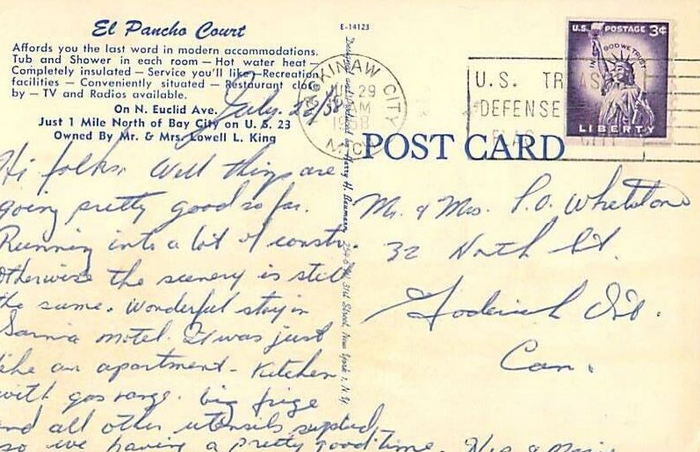 El Pancho Court
Affords you the last word in modern accommodations.
Tub and Shower in each room — Hot water heat —
Completely insulated — Service you'll like — Recreation
facilities — Conveniently situated — Restaurant close
by — TV and Radios available.
On N. Euclid Ave.
Just 1 Mile North of Bay City on U. S. 23
Owned By Mr. & Mrs. Lowell L. King
July 28/58
Hi folks. Well things are
going pretty good so far.
Running into a lot of constr.
Otherwise the scenery is still
the same. Wonderful stay in
Sarnia motel. It was just
like an apartment - Kitchen
with gas range. big frige
and all other utensils supplied
so we having a pretty good time.
E-14123
Harry H. Baumann, 31d Street, New York 1, N.Y.
MACKINAW CITY
29
AM
1958
MICH
U.S. TREAS
DEFENSE
U.S. POSTAGE 3¢
IN GOD WE TRUST
LIBERTY
POST CARD
Mr. & Mrs. P.O. Whetstone
32 North St.
Goderich Ont.
Can.